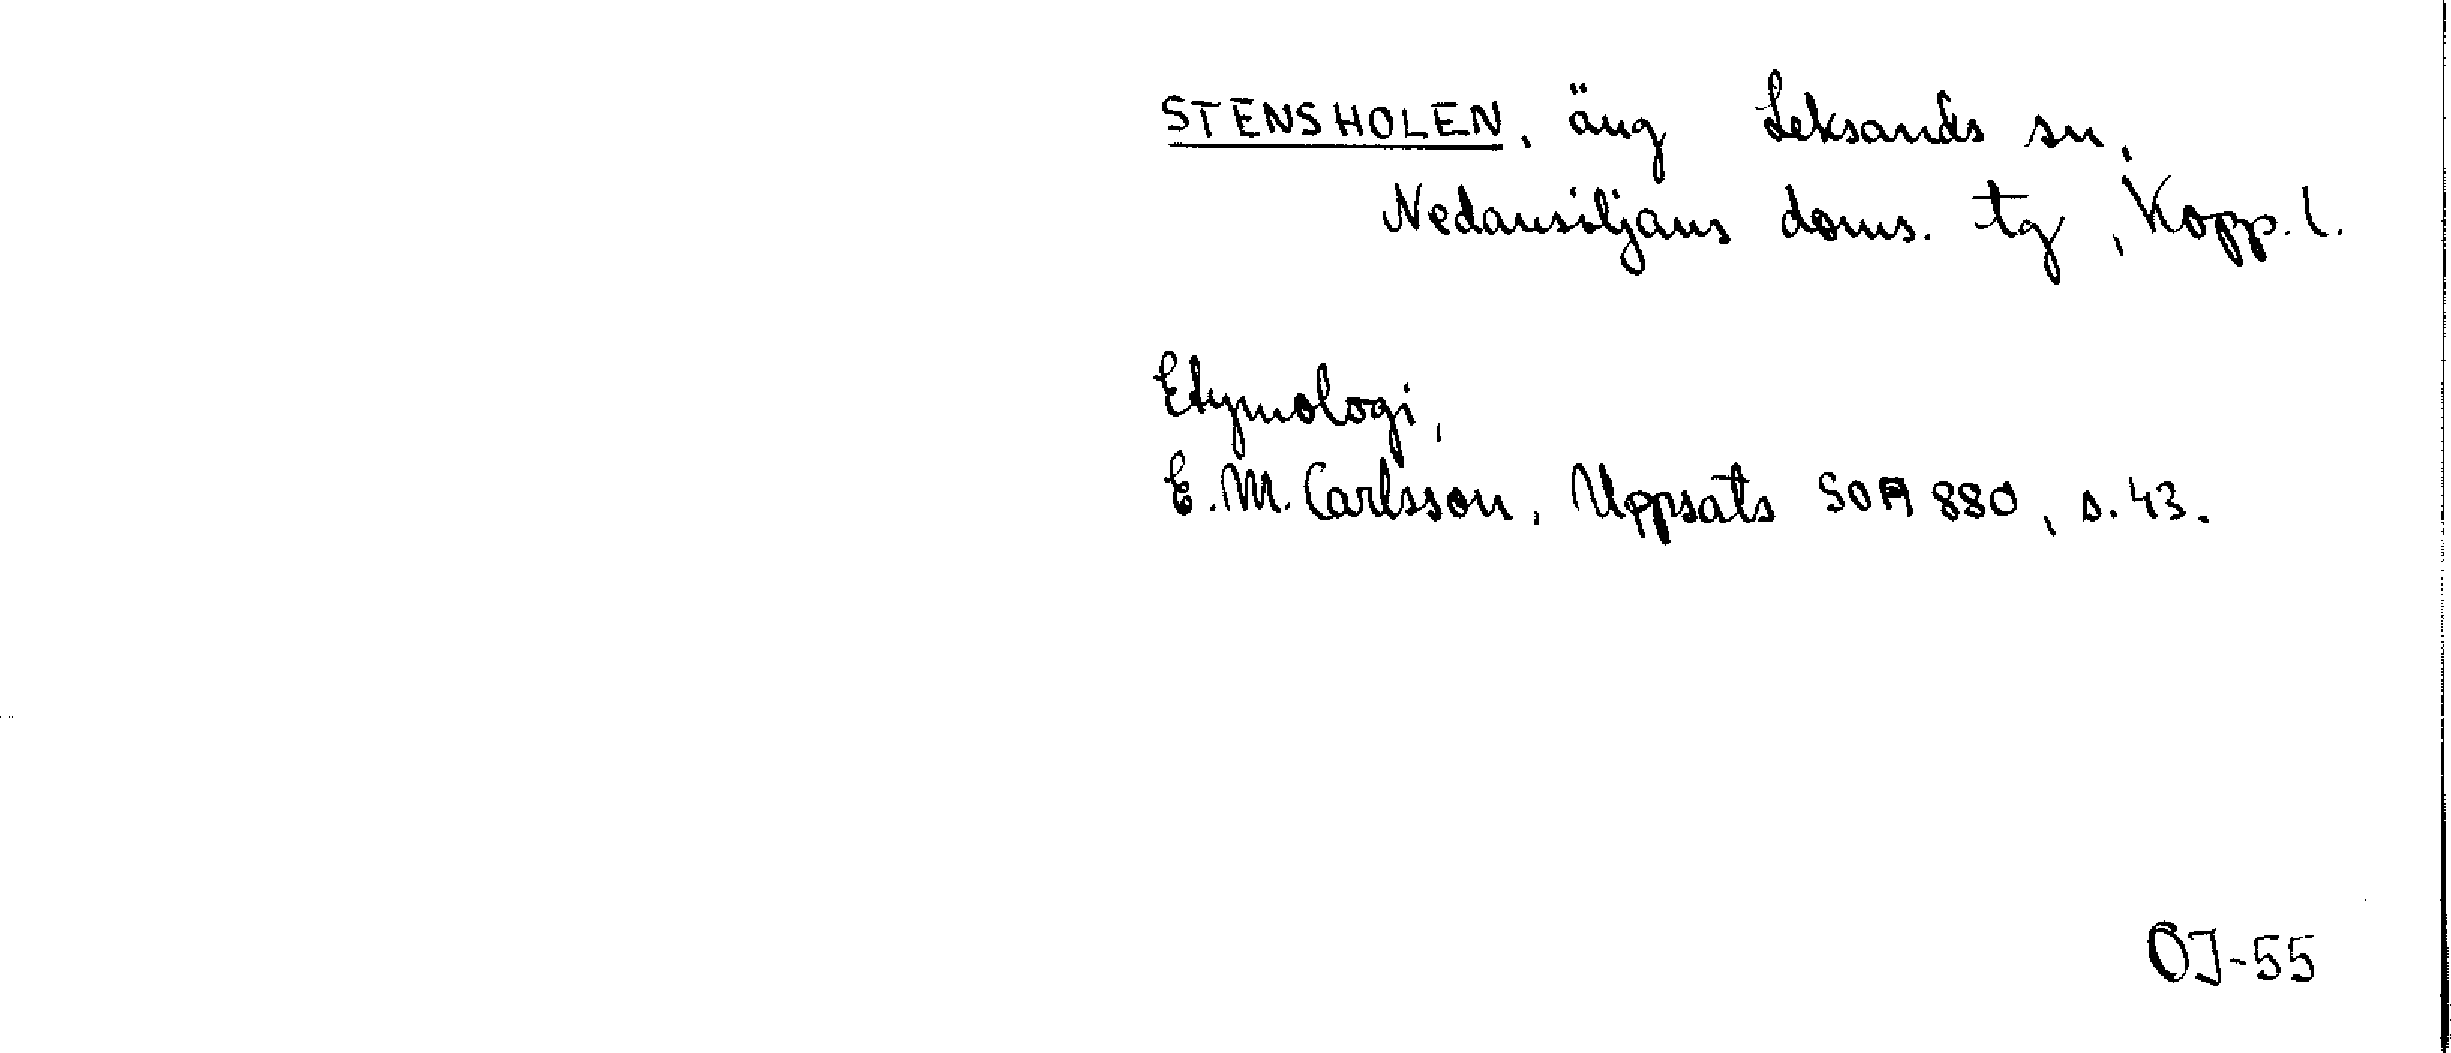 STENSHOLEN, äng Leksands sn,
Nedansiljans doms. tg, Kopp. l.
Etymologi,
E. M. Carlsson, Uppsats SOA 880, s. 43.
OJ-55